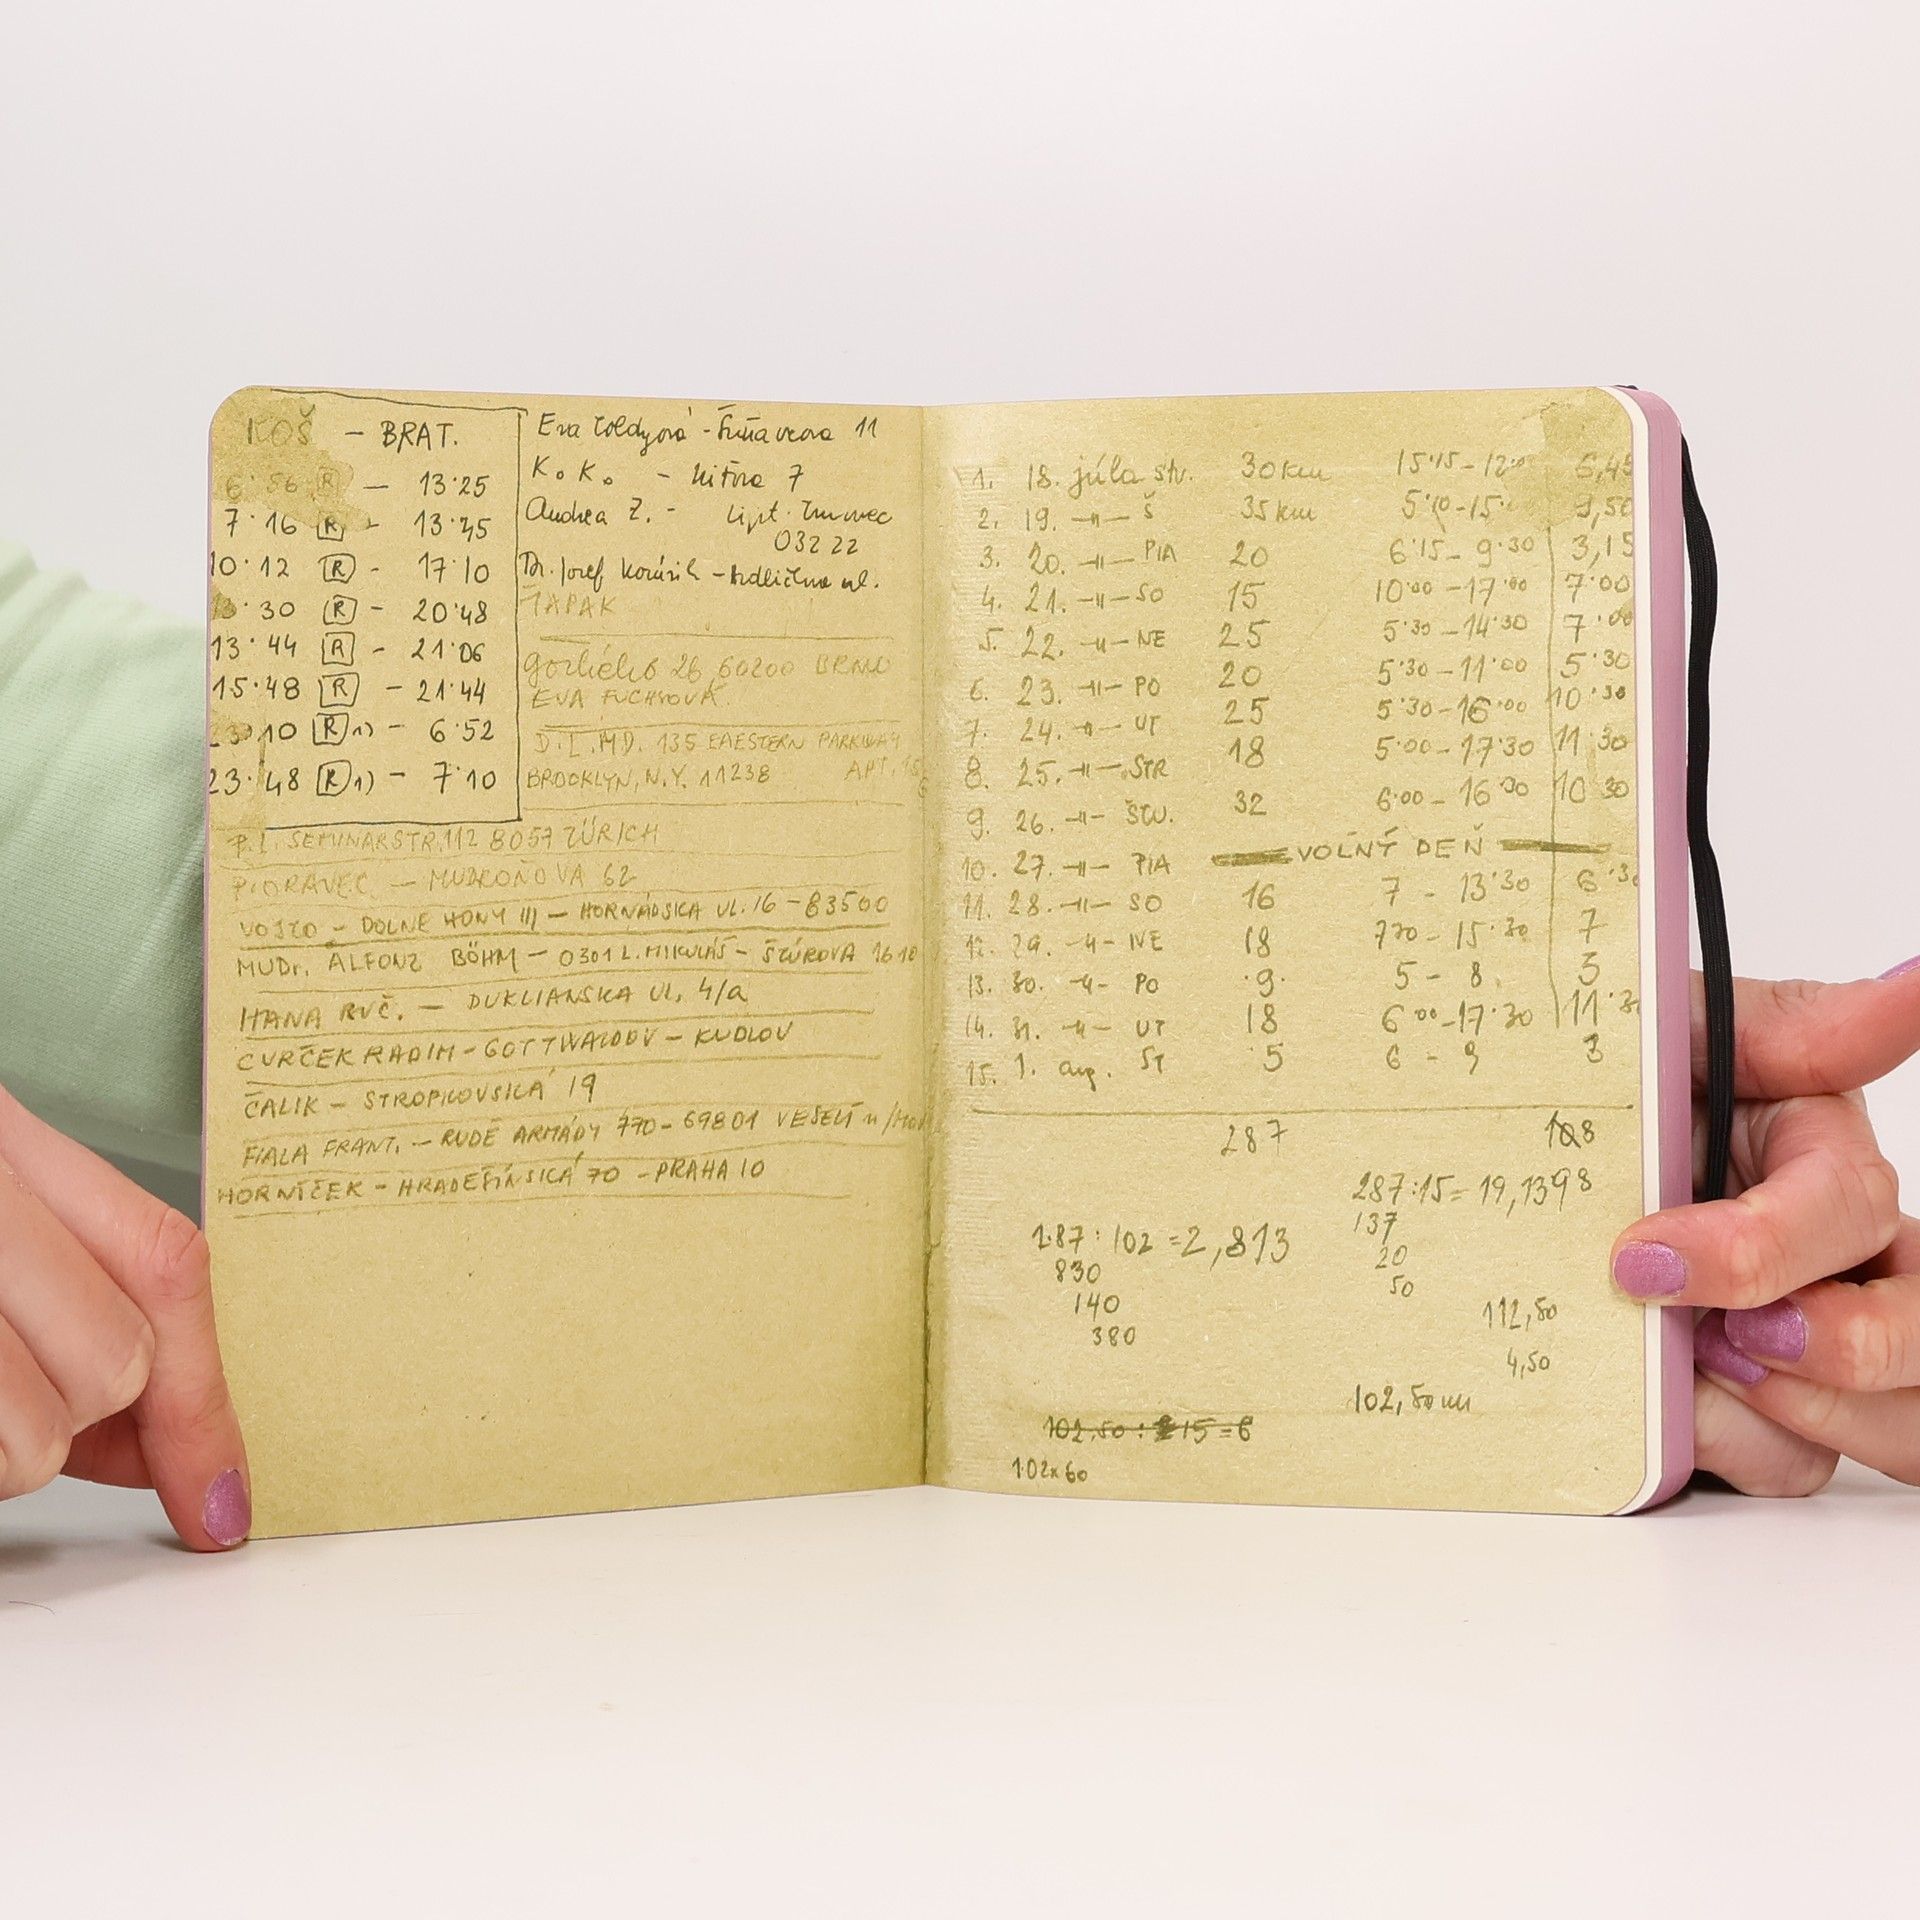 KOŠ - BRAT.
6·56 R - 13·25
7·16 R - 13·45
10·12 R - 17·10
13·30 R - 20·48
13·44 R - 21·06
15·48 R - 21·44
23·10 R 1) - 6·52
23·48 R 1) - 7·10
Eva 11
K. K. - 7
Andrea Z. - Lipt.
032 22
Dr. Jozef ul.
ŤAPAK
26, 60200 BRNO
EVA FUCHSOVÁ.
D.L. MD. 135 EAESTERN PARKWAY
BROOKLYN, N.Y. 11238 APT.
P.L. SEMINARSTR. 112 8057 ZÜRICH
MUDROŇOVA 62
VOJTO - DOLNÉ HONY III - HORNÁDSKA UL. 16 - 83500
MUDr. ALFONZ BÖHM - 0301 L. MIKULÁŠ - ŠTÚROVA
HANA RUČ. - DUKLIANSKA UL. 4/a
CURČEK RADIM - GOTTWALDOV - KUDLOV
ČALIK - STROPKOVSKÁ 19
FIALA FRANT. - RUDÉ ARMÁDY 770 - 69801 VESELÍ n/Mor
HORNÍČEK - HRADEŠÍNSKÁ 70 - PRAHA 10
1. 18. júla str. 30 km 15·15 - 12·00 6,45
2. 19. -"- Š 35 km 5·10 - 15· 9,50
3. 20. -"- PIA 20 6·15 - 9·30 3,15
4. 21. -"- SO 15 10·00 - 17·00 7·00
5. 22. -"- NE 25 5·30 - 14·30 7·00
6. 23. -"- PO 20 5·30 - 11·00 5·30
7. 24. -"- UT 25 5·30 - 16·00 10·30
8. 25. -"- STR 18 5·00 - 17·30 11·30
9. 26. -"- ŠTV. 32 6·00 - 16·30 10·30
10. 27. -"- PIA VOĽNÝ DEŇ
11. 28. -"- SO 16 7 - 13·30 6·30
12. 29. -"- NE 18 - 15·30 7
13. 30. -"- PO 9 5 - 8 3
14. 31. -"- UT 18 6·00 - 17·30 11·30
15. 1. aug. ST 5 6 - 9 3
287 108
287:15 = 19,1398
137
20
50
287 : 102 = 2,813
830
140
380
112,50
4,50
102,50
102.50 : 15 = 6
102x60